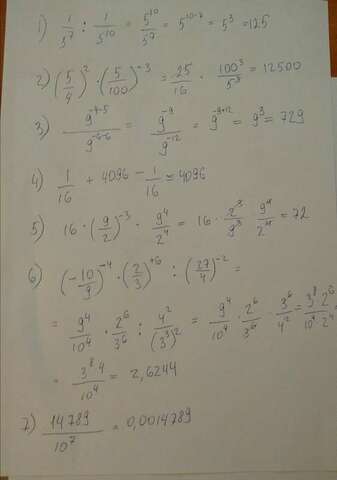 1) 1/5^7 : 1/5^10 = 5^10/5^7 = 5^10-7 = 5^3 = 125
2) (5/4)^2 · (5/100)^-3 = 25/16 · 100^3/5^3 = 12500
3) 9^-4-5/9^-6-6 = 9^-9/9^-12 = 9^-9+12 = 9^3 = 729
4) 1/16 + 4096 - 1/16 = 4096
5) 16 · (9/2)^-3 · 9^4/2^4 = 16 · 2^3/9^3 · 9^4/2^4 = 72
6) (-10/9)^-4 · (2/3)^+6 : (27/4)^-2 =
= 9^4/10^4 · 2^6/3^6 : 4^2/(3^3)^2 = 9^4/10^4 · 2^6/3^6 · 3^6/4^2 = 3^8 2^6/10^4 · 2^4
= 3^8 4/10^4 = 2,6244
7) 14789/10^7 = 0,0014789